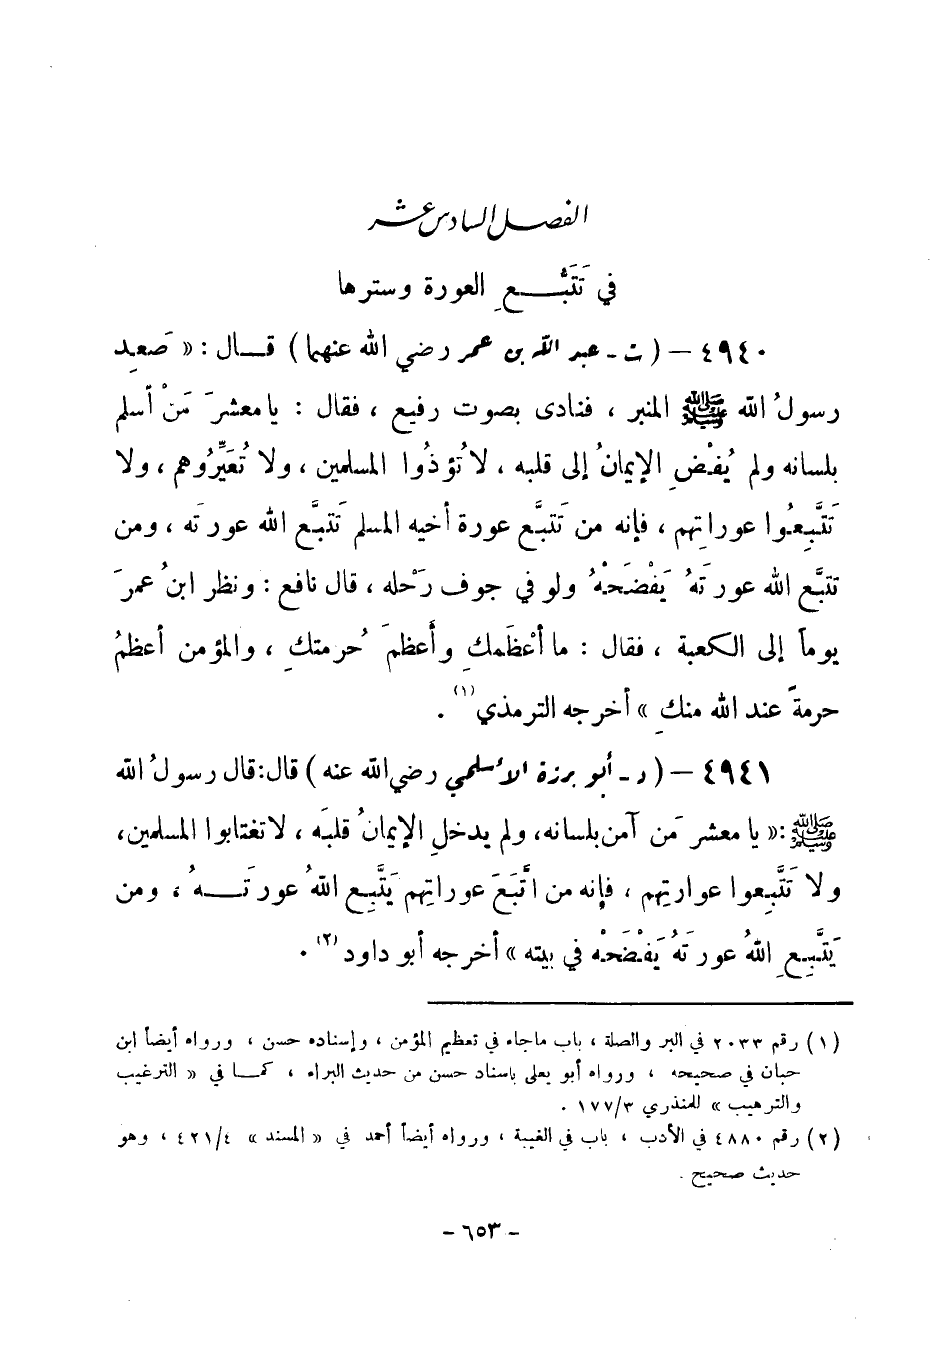 الفصل السادس عشر
في تَتَبُّـــعِ العورة وسترها
٤٩٤٠ – ( ت - عبد الله بن عمر رضي الله عنهما ) قـــال : « صَعِد
رسولُ الله ﷺ المنبر ، فنادى بصوت رفيع ، فقال : يا معشرَ مَنْ أسلم
بلسانه ولم يُفْضِ الإيمانُ إلى قلبه ، لا تُؤذُوا المسلمين ، ولا تُعَيِّرُوهم ، ولا
تَتَّبِعُوا عوراتِهم ، فإنه من تَتَبَّع عورة أخيه المسلم تَتبَّع الله عورتَه ، ومن
تتبَّع الله عورتَهُ يَفْضَحْهُ ولو في جوف رَحْله ، قال نافع : ونظر ابنُ عمرَ
يوماً إلى الكعبة ، فقال : ما أعْظَمكِ وأَعظمَ حُرمتكِ ، والمؤمن أعظمُ
حرمةً عند الله منكِ » أخرجه الترمذي (١) .
٤٩٤١ – ( د - أبو برزة الأسلمي رضي الله عنه ) قال: قال رسولُ الله
ﷺ :« يا معشر مَن آمن بلسانه، ولم يدخلِ الإيمانُ قلبَه ، لا تغتابوا المسلمين،
ولا تَتَّبِعوا عوارتِهم ، فإنه من اتَّبَعَ عوراتِهم يَتَّبِع اللهُ عورتَـــهُ ، ومن
يَتَّبِعِ اللهُ عورتَهُ يَفْضَحْهُ في بيته » أخرجه أبو داود (٢) .
(١) رقم ٢٠٣٣ في البر والصلة ، باب ماجاء في تعظيم المؤمن ، وإسناده حسن ، ورواه أيضاً ابن
حبان في صحيحه ، ورواه أبو يعلى بإسناد حسن من حديث البراء ، كمـــا في « الترغيب
والترهيب » للمنذري ١٧٧/٣ .
(٢) رقم ٤٨٨٠ في الأدب ، باب في الغيبة ، ورواه أيضاً أحمد في « المسند » ٤٢١/٤ ، وهو
حديث صحيح .
- ٦٥٣ -